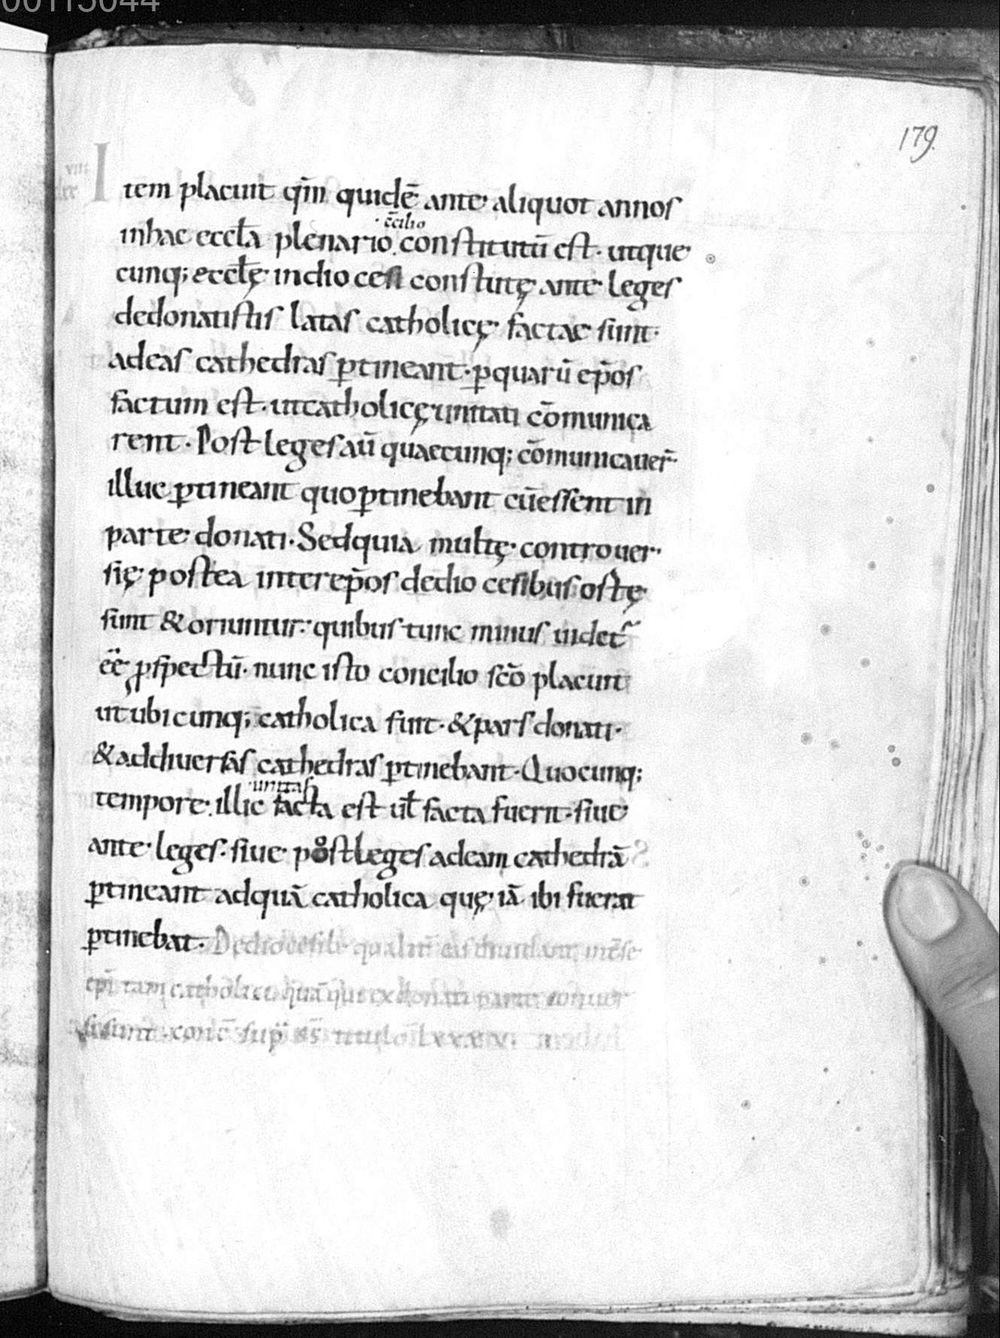 00115044
179.
Item placuit qm̄ quidē ante aliquot annos
inhac eccƚa plenario c̄cilio constitutū est. utque
cunq; eccƚę indiocesi constitutę ante leges
dedonatistis latas catholicę factae sunt.
adeas cathedras ꝑtineant. ꝑquarū ep̄os
factum est. utcatholicę unitati cōmunica
rent. Post leges aū quaecunq; cōmunicauer̄.
illuc ꝑtineant quo ꝑtinebant cūessent in
parte donati. Sedquia multę controuer
się postea interep̄os dedio cesibus ostę
sunt & oriuntur. quibus tunc minus uidet᷑
eē̄ ꝓspectū. nunc isto concilio sc̄o placuit
ut ubicunq; catholica fuit. & pars donati.
& addiuersas cathedras ꝑtinebant. Quocunq;
tempore. illic unitas facta est uƚ facta fuerit. siue
ante leges. siue post leges adeam cathedrā
ꝑtineant adquā catholica quę iā ibi fuerat
ꝑtinebat. Dediocesib
ep̄i tam catholice quā qui ex donati parte conuer
si sunt. conc̄ sup̄